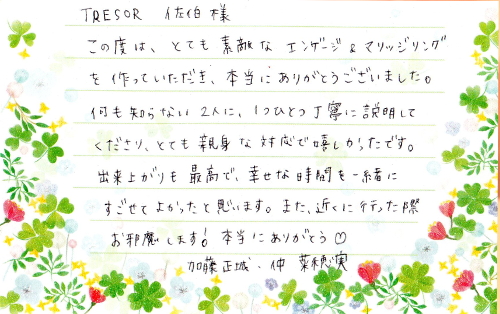 TRESOR 佐伯様
この度は、とても素敵なエンゲージ&マリッジリング
を作っていただき、本当にありがとうございました。
何も知らない2人に、1つひとつ丁寧に説明して
くださり、とても親身な対応で嬉しかったです。
出来上がりも最高で、幸せな時間を一緒に
すごせてよかったと思います。また、近くに行った際
お邪魔します!本当にありがとう♡
加藤正城、仲 菜穂実